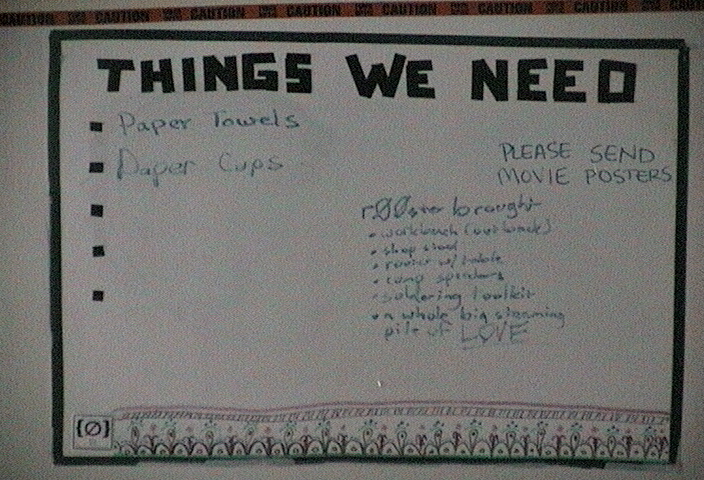 CAUTION CAUTION CAUTION CAUTION CAUTION CAUTION CAUTION CAUTION
THINGS WE NEED
Paper Towels
Paper Cups
PLEASE SEND
MOVIE POSTERS
r00ster brought
• workbench (out back)
• shop stool
• router w/ table
• comp speakers
• soldering toolkit
• a whole big steaming
pile of LOVE
{Ø}